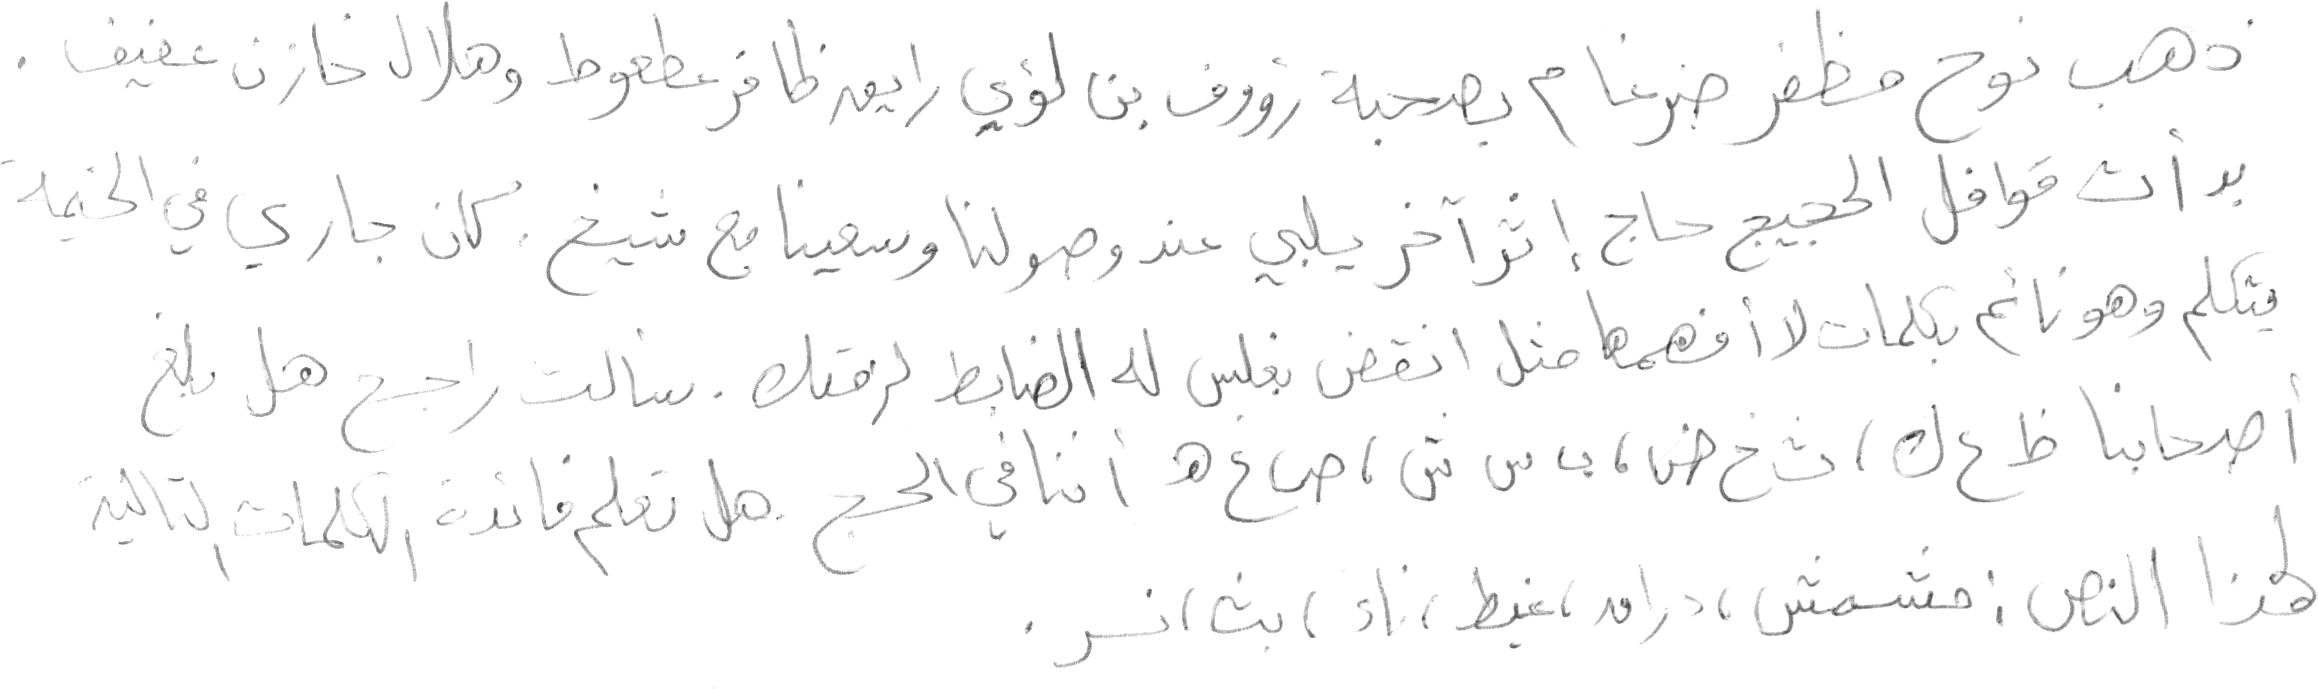 ذهب نوح مظفر ضرغام بصحبة رؤوف بن لؤي رايق ظافر عطعوط وهلال خازن عفيف .
بدأت قوافل الحجيج حاج إثر آخر يلبي عند وصولنا وسعينا مع شيخ . كان جاري في الخيمة
يتكلم وهو نائم بكلمات لا أفهمها مثل انقض بغلس له الضابط لرقتك . سألت راجح هل بلغ
أصحابنا ظ ع ك ، ث خ ض ، ب س ش ، ص غ هـ أننا في الحج . هل تعلم فائدة الكلمات التالية
لهذا النص : مشمش ، دراق ، غيظ ، زاذ ، بث ، نسر .